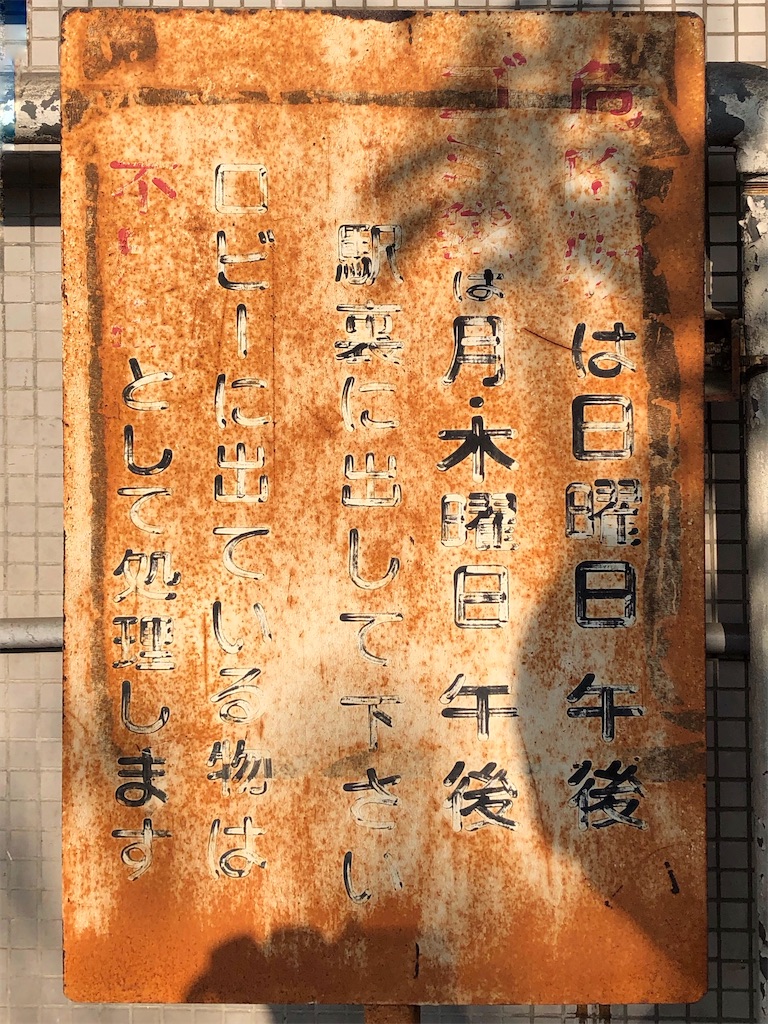 危険物は日曜日 午後
ゴミは月・木曜日 午後
駅裏に出して下さい
ロビーに出ている物は
として処理します